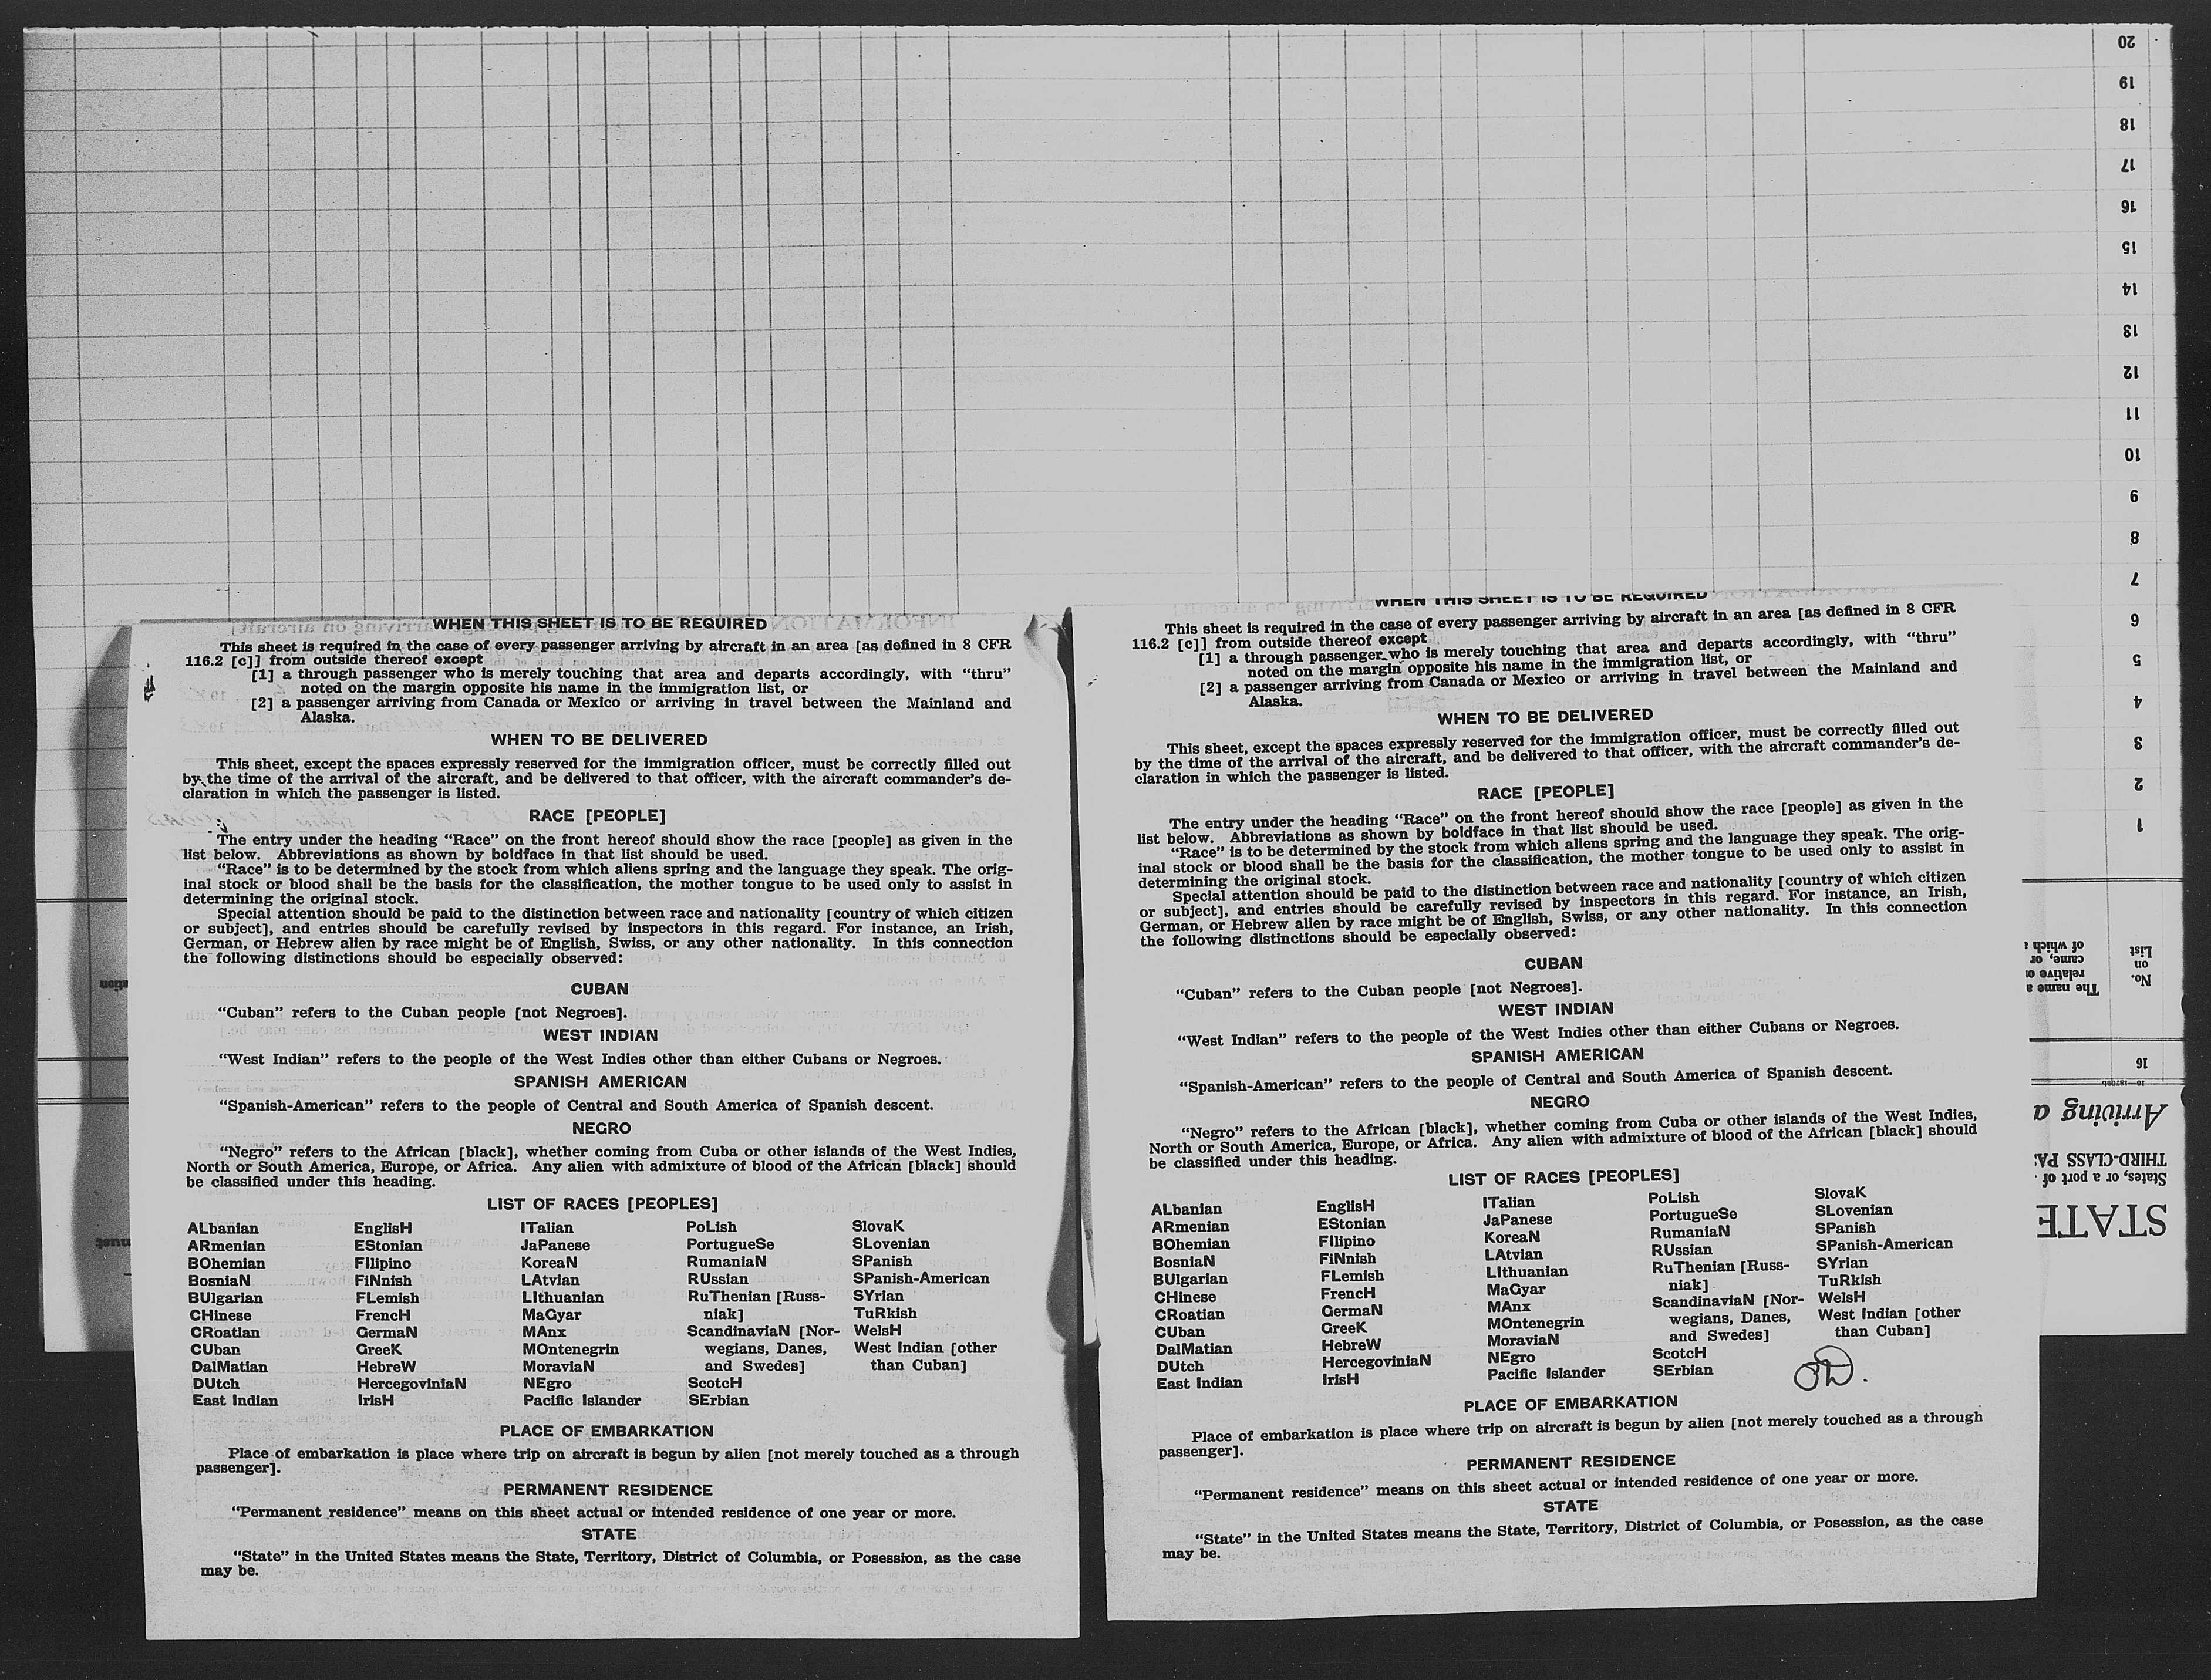 WHEN THIS SHEET IS TO BE REQUIRED
This sheet is required in the case of every passenger arriving by aircraft in an area [as defined in 8 CFR
116.2 [c]] from outside thereof except
[1] a through passenger who is merely touching that area and departs accordingly, with “thru”
noted on the margin opposite his name in the immigration list, or
[2] a passenger arriving from Canada or Mexico or arriving in travel between the Mainland and
Alaska.
WHEN TO BE DELIVERED
This sheet, except the spaces expressly reserved for the immigration officer, must be correctly filled out
by the time of the arrival of the aircraft, and be delivered to that officer, with the aircraft commander’s de-
claration in which the passenger is listed.
RACE [PEOPLE]
The entry under the heading “Race” on the front hereof should show the race [people] as given in the
list below. Abbreviations as shown by boldface in that list should be used.
“Race” is to be determined by the stock from which aliens spring and the language they speak. The orig-
inal stock or blood shall be the basis for the classification, the mother tongue to be used only to assist in
determining the original stock.
Special attention should be paid to the distinction between race and nationality [country of which citizen
or subject], and entries should be carefully revised by inspectors in this regard. For instance, an Irish,
German, or Hebrew alien by race might be of English, Swiss, or any other nationality. In this connection
the following distinctions should be especially observed:
CUBAN
“Cuban” refers to the Cuban people [not Negroes].
WEST INDIAN
“West Indian” refers to the people of the West Indies other than either Cubans or Negroes.
SPANISH AMERICAN
“Spanish-American” refers to the people of Central and South America of Spanish descent.
NEGRO
“Negro” refers to the African [black], whether coming from Cuba or other islands of the West Indies,
North or South America, Europe, or Africa. Any alien with admixture of blood of the African [black] should
be classified under this heading.
LIST OF RACES [PEOPLES]
ALbanian EnglisH ITalian PoLish SlovaK
ARmenian EStonian JaPanese PortugueSe SLovenian
BOhemian FIlipino KoreaN RumaniaN SPanish
BosniaN FiNnish LAtvian RUssian SPanish-American
BUlgarian FLemish LIthuanian RuThenian [Russ- SYrian
CHinese FrencH MaGyar niak] TuRkish
CRoatian GermaN MAnx ScandinaviaN [Nor- WelsH
CUban GreeK MOntenegrin wegians, Danes, West Indian [other
DalMatian HebreW MoraviaN and Swedes] than Cuban]
DUtch HercegoviniaN NEgro ScotcH
East Indian IrisH Pacific Islander SErbian
PLACE OF EMBARKATION
Place of embarkation is place where trip on aircraft is begun by alien [not merely touched as a through
passenger].
PERMANENT RESIDENCE
“Permanent residence” means on this sheet actual or intended residence of one year or more.
STATE
“State” in the United States means the State, Territory, District of Columbia, or Posession, as the case
may be.
WHEN THIS SHEET IS TO BE REQUIRED
This sheet is required in the case of every passenger arriving by aircraft in an area [as defined in 8 CFR
116.2 [c]] from outside thereof except
[1] a through passenger who is merely touching that area and departs accordingly, with “thru”
noted on the margin opposite his name in the immigration list, or
[2] a passenger arriving from Canada or Mexico or arriving in travel between the Mainland and
Alaska.
WHEN TO BE DELIVERED
This sheet, except the spaces expressly reserved for the immigration officer, must be correctly filled out
by the time of the arrival of the aircraft, and be delivered to that officer, with the aircraft commander’s de-
claration in which the passenger is listed.
RACE [PEOPLE]
The entry under the heading “Race” on the front hereof should show the race [people] as given in the
list below. Abbreviations as shown by boldface in that list should be used.
“Race” is to be determined by the stock from which aliens spring and the language they speak. The orig-
inal stock or blood shall be the basis for the classification, the mother tongue to be used only to assist in
determining the original stock.
Special attention should be paid to the distinction between race and nationality [country of which citizen
or subject], and entries should be carefully revised by inspectors in this regard. For instance, an Irish,
German, or Hebrew alien by race might be of English, Swiss, or any other nationality. In this connection
the following distinctions should be especially observed:
CUBAN
“Cuban” refers to the Cuban people [not Negroes].
WEST INDIAN
“West Indian” refers to the people of the West Indies other than either Cubans or Negroes.
SPANISH AMERICAN
“Spanish-American” refers to the people of Central and South America of Spanish descent.
NEGRO
“Negro” refers to the African [black], whether coming from Cuba or other islands of the West Indies,
North or South America, Europe, or Africa. Any alien with admixture of blood of the African [black] should
be classified under this heading.
LIST OF RACES [PEOPLES]
ALbanian EnglisH ITalian PoLish SlovaK
ARmenian EStonian JaPanese PortugueSe SLovenian
BOhemian FIlipino KoreaN RumaniaN SPanish
BosniaN FiNnish LAtvian RUssian SPanish-American
BUlgarian FLemish LIthuanian RuThenian [Russ- SYrian
CHinese FrencH MaGyar niak] TuRkish
CRoatian GermaN MAnx ScandinaviaN [Nor- WelsH
CUban GreeK MOntenegrin wegians, Danes, West Indian [other
DalMatian HebreW MoraviaN and Swedes] than Cuban]
DUtch HercegoviniaN NEgro ScotcH
East Indian IrisH Pacific Islander SErbian
PLACE OF EMBARKATION
Place of embarkation is place where trip on aircraft is begun by alien [not merely touched as a through
passenger].
PERMANENT RESIDENCE
“Permanent residence” means on this sheet actual or intended residence of one year or more.
STATE
“State” in the United States means the State, Territory, District of Columbia, or Posession, as the case
may be.
STATE
States, or a port of
THIRD-CLASS PA
Arriving a
16
No.
on
List
The name a
relative o
came, or
of which
1
2
3
4
5
6
7
8
9
10
11
12
13
14
15
16
17
18
19
20